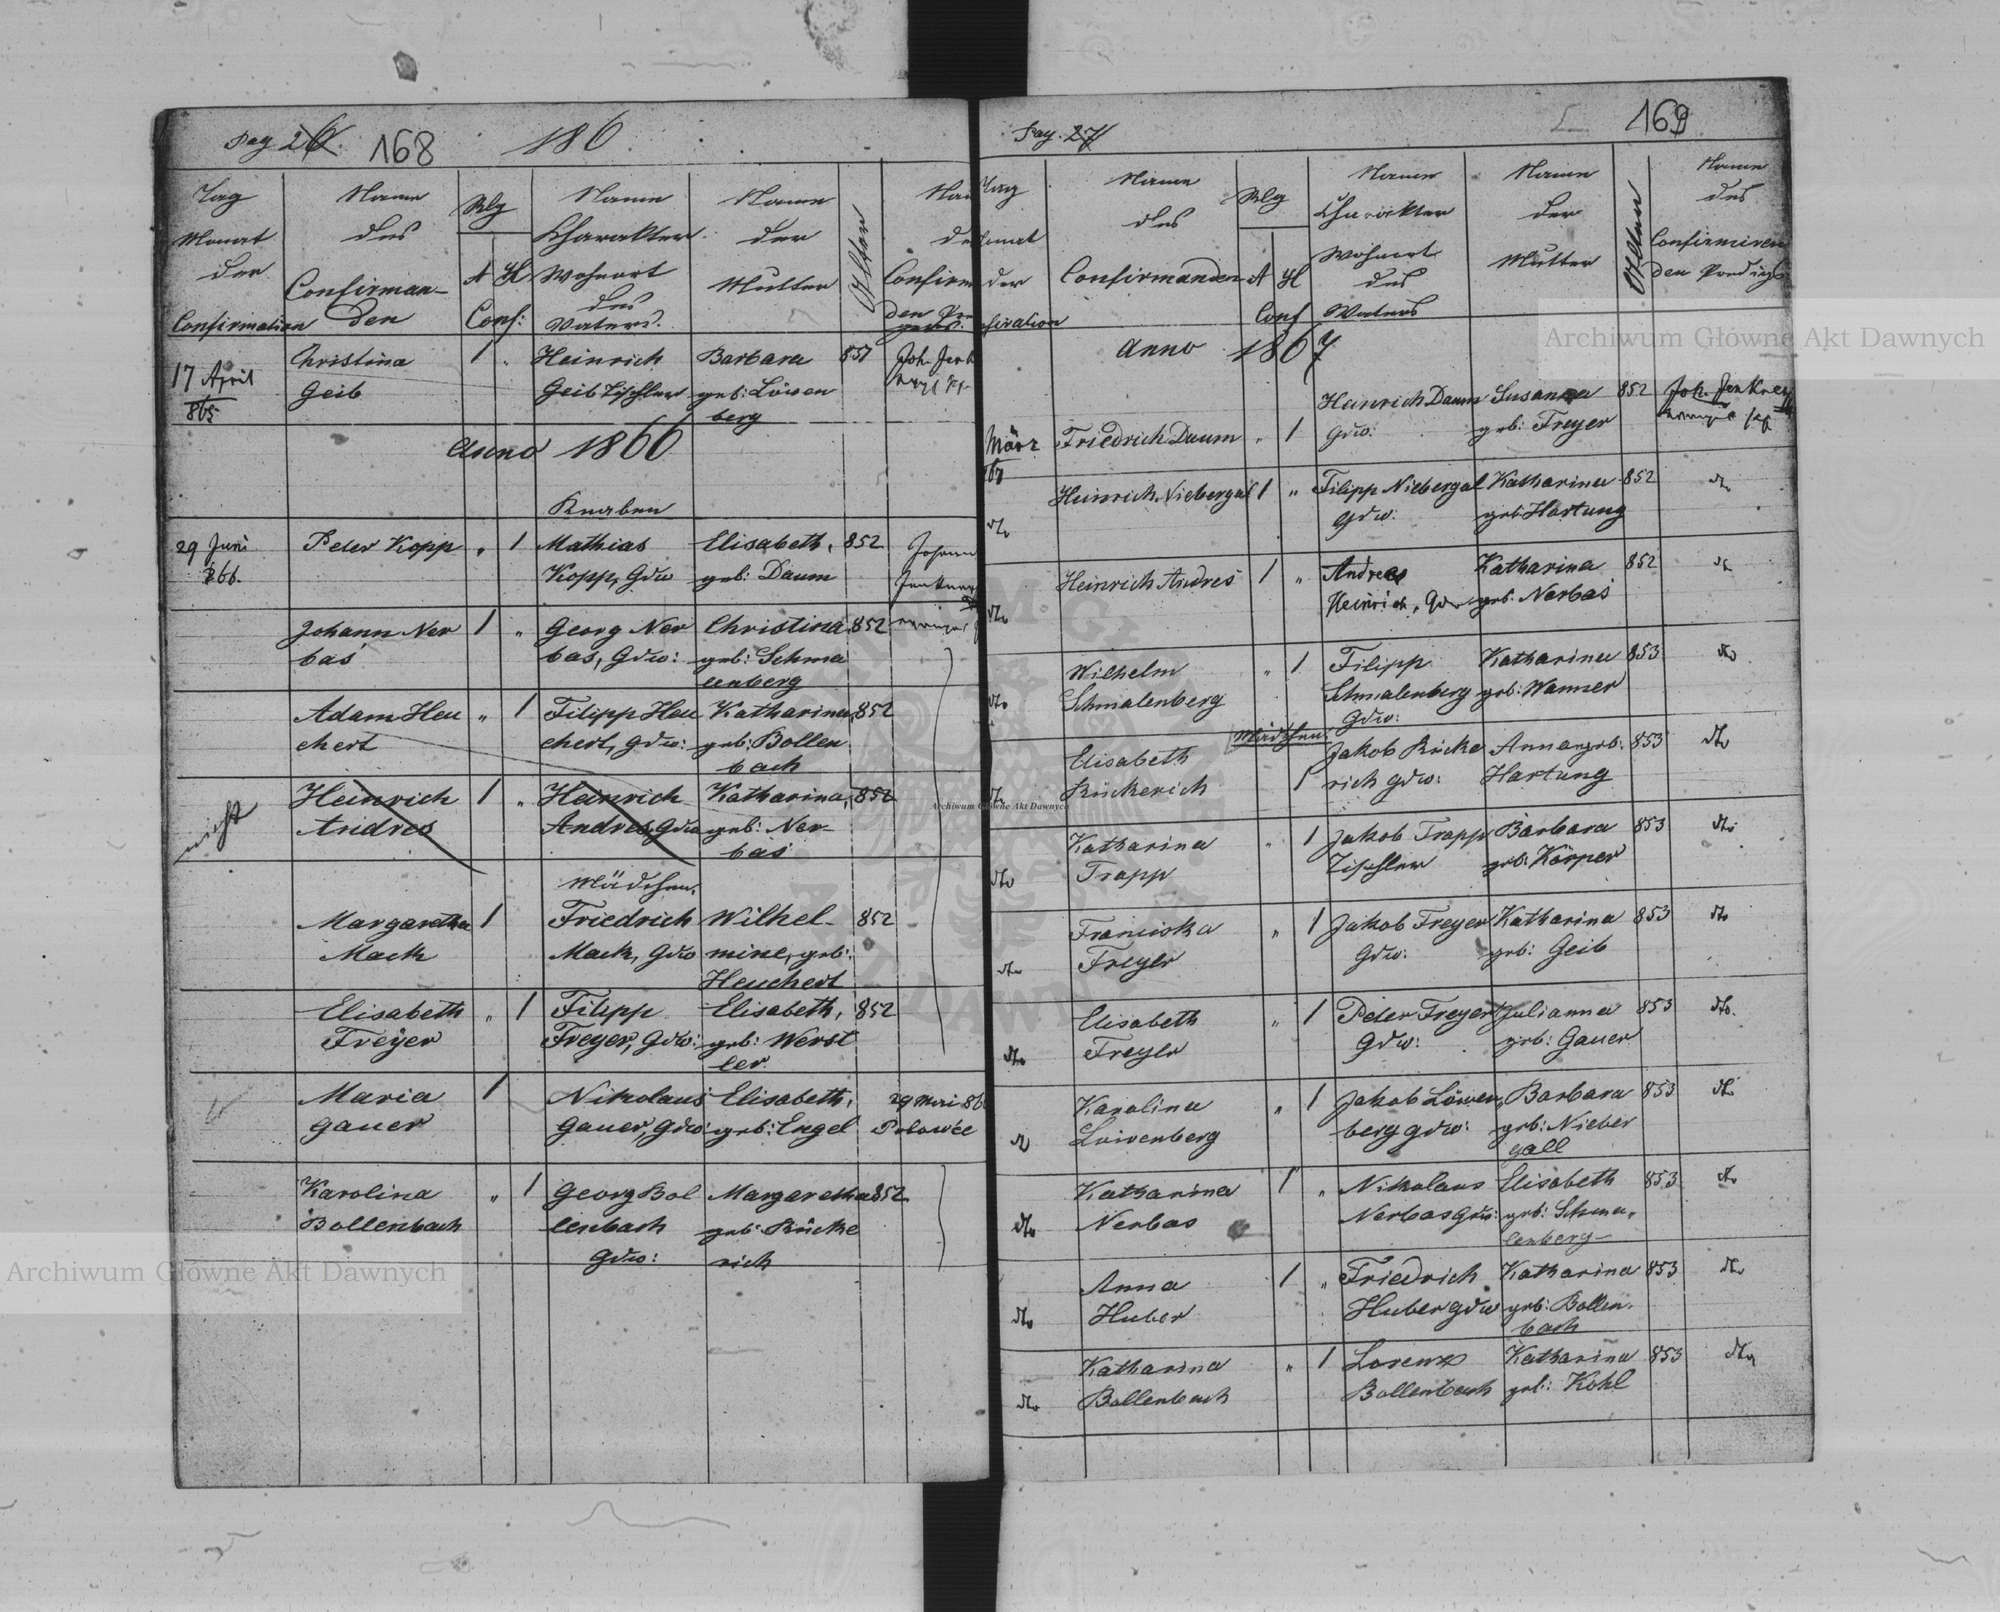 Pag 26. 168 186
Tag
Monat
der
Confirmation
Name
des
Confirman-
den
Rlg
A H
Conf:
Name
Charakter
Wohnort
des
Vaters.
Name
der
Mutter
Alter
Confirm
17 April
865
Christina
Geib
1 "
Heinrich
Geib Tischler
Barbara
geb: Löwen
berg
851
Anno 1866
Knaben
29 Juni
866.
Peter Kopp
" 1
Mathias
Kopp, Gdw
Elisabeth,
geb: Daum
852
Johann
Johann Ner
bas
1 "
Georg Ner
bas, Gdw:
Christina
geb: Schma
lenberg
852
Adam Heu
chert
" 1
Filipp Heu
chert, Gdw:
Katharina,
geb: Bollen
bach
852
nicht
Heinrich
Andres
1 "
Heinrich
Andres, Gdw
Katharina,
geb: Ner-
bas
852
Mädchen.
Margaretha
Mack
1
Friedrich
Mack, Gdw
Wilhel-
mine, geb:
Heuchert
852
Elisabeth
Freyer
" 1
Filipp
Freyer, Gdw:
Elisabeth,
geb: Werst
ler.
852
Maria
Gauer
1
Nikolaus
Gauer, Gdw:
Elisabeth,
geb: Engel
29 Mai 86
Polowce
Karolina
Bollenbach
" 1
Georg Bol
lenbach
Gdw:
Margaretha
geb: Rücke
rich
852
Pag. 27 169
Tag
Monat
der
Name
des
Confirmanden
Rlg
A H
Conf
Name
Charakter
Wohnort
des
Vaters
Name
der
Mutter
Name
des
Confirmiren
den Predigers
Anno 1867
März
Friedrich Daum
" 1
Heinrich Daum
Gdw:
Susanna
geb: Freyer
852
dto
Heinrich Niebergal
1 "
Filipp Niebergal
Gdw:
Katharina
geb: Hartung
852
dto
dto
Heinrich Andres
1 "
Andres
Heinrich, Gdw
Katharina
geb: Nerbas
852
dto
dto
Wilhelm
Schmalenberg
" 1
Filipp
Schmalenberg
Gdw:
Katharina
geb: Wanner
853
dto
Mädchen:
dto
Elisabeth
Rückerich
1
Jakob Rücke
rich Gdw:
Anna geb:
Hartung
853
dto
dto
Katharina
Trapp
" 1
Jakob Trapp
Tischler
Barbara
geb: Körper
853
dto
dto
Franciska
Freyer
" 1
Jakob Freyer
Gdw:
Katharina
geb: Geib
853
dto
dto
Elisabeth
Freyer
" 1
Peter Freyer
Gdw:
Julianna
geb: Gauer
853
dto.
dto
Karolina
Löwenberg
" 1
Jakob Löwen
berg Gdw:
Barbara
geb: Nieber
gall
853
dto
dto
Katharina
Nerbas
1 "
Nikolaus
Nerbas Gdw:
Elisabeth
geb: Schma,
lenberg
853
dto
dto
Anna
Huber
1 "
Friedrich
Huber Gdw
Katharina
geb: Bollen,
bach
853
dto
dto
Katharina
Bollenbach
" 1
Lorenz
Bollenbach
Katharina
geb: Kohl
853
dto
Archiwum Główne Akt Dawnych
Archiwum Główne Akt Dawnych
Archiwum Główne Akt Dawnych